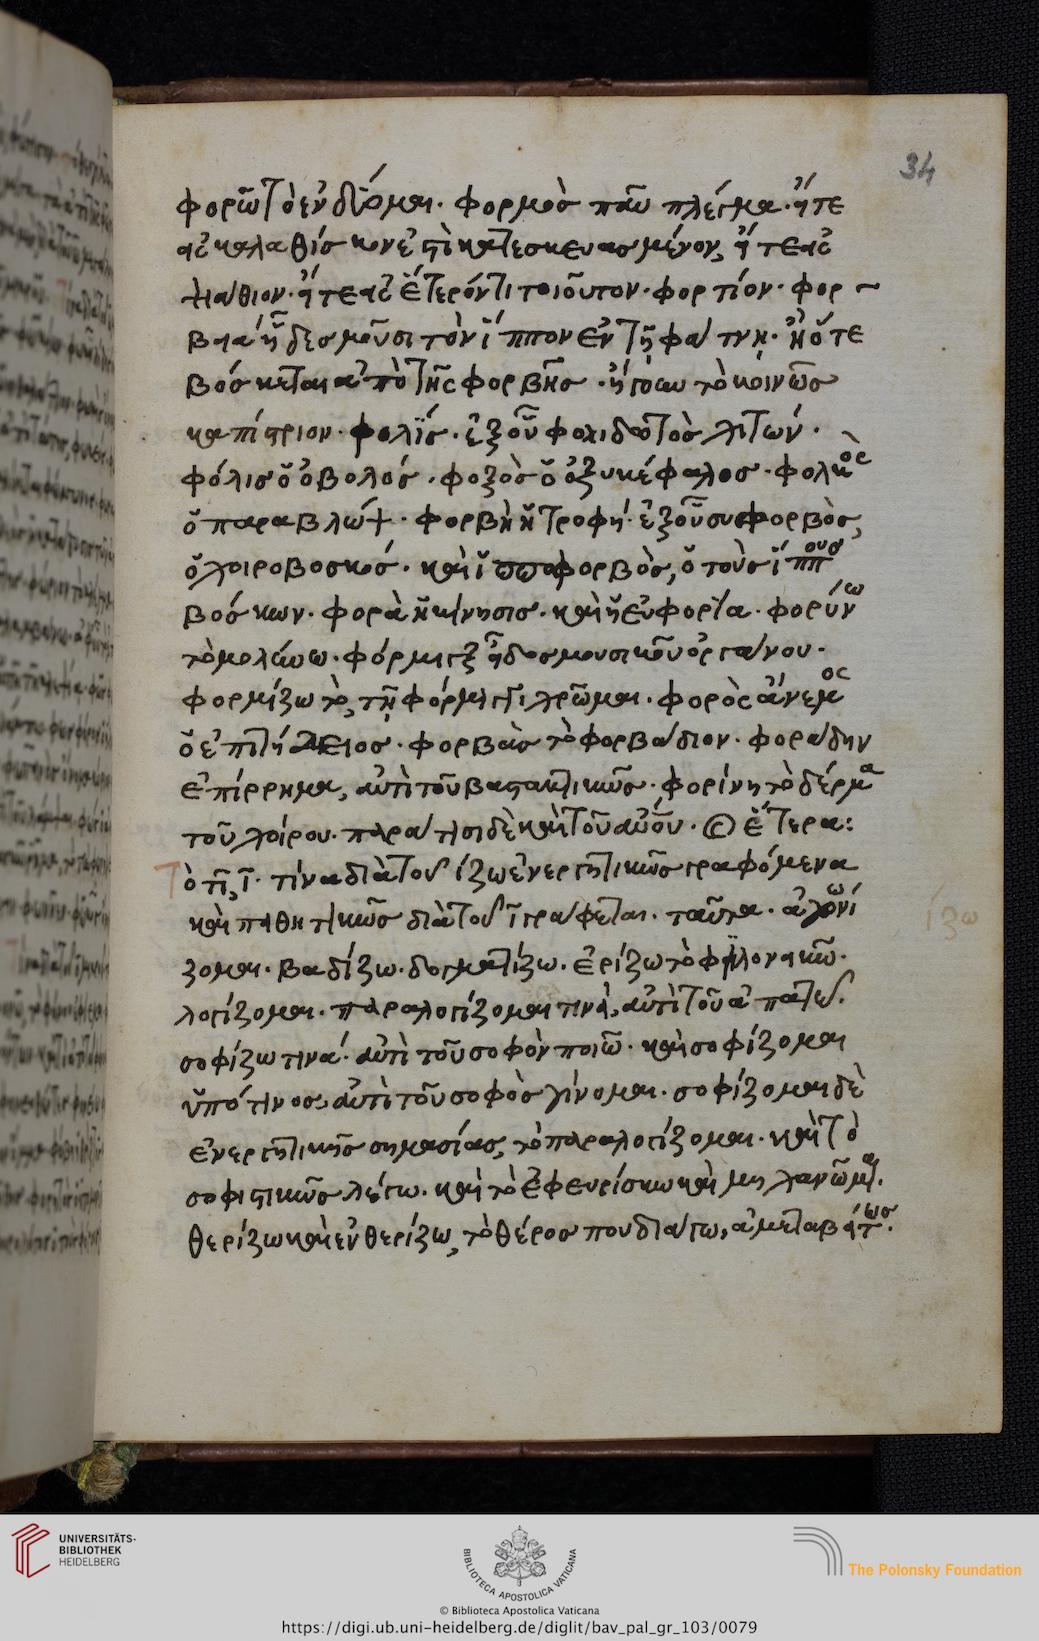 34
φορῶ τὸ ἐνδύομαι· φορμὸς πᾶν πλέγμα· εἴτε
εἰς καλαθίσκον ἐστὶ κατεσκευασμένον, εἴτε εἰς
εἴτε εἰς ἕτερόν τι τοιοῦτον· φορτίον· φορ
βιὰ ᾗ δεσμοῦσι τὸν ἵππον ἐν τῇ φάτνῃ· ᾗ ὅτε
βόσκεται ἀπὸ τῆς φορβῆς· ἤγουν τὸ κοινῶς
καπίστριον· φολίς· ἐξ οὗ φολιδωτὸς χιτών·
φόλις ὁ ὀβολός· φοξὸς ὁ ὀξυκέφαλος· φολκὸς
ὁ παραβλώψ· φορβὴ ἡ τροφή· ἐξ οὗ συφορβὸς,
ὁ χοιροβοσκός· καὶ ἱπποφορβὸς, ὁ τοὺς ἵππους
βόσκων· φορὰ ἡ κίνησις· καὶ ἡ εὐφορία· φορύνω
τὸ μολύνω· φόρμιγξ εἶδος μουσικοῦ ὀργάνου·
φορμίζω τὸ, τῇ φόρμιγγι χρῶμαι· φορὸς ἄνεμος
ὁ ἐπιτήδειος· φορβὰς τὸ φορβάδιον· φοράδην
ἐπίρρημα, ἀντὶ τοῦ βαστακτικῶς· φορίνη τὸ δέρμα
τοῦ χοίρου· παρά τισι δὲ καὶ τοῦ ἀνοῦ· ἕτερα:
Τὸ τι, ῑ· τίνα διὰ τοῦ ίζω ἐνεργητικῶς γραφόμενα
καὶ παθητικῶς διὰ τοῦ ῑ γράφεται· ταῦτα· ἀγωνί
ζομαι· βαδίζω· δογματίζω· ἐρίζω τὸ φιλονικῶ·
λογίζομαι· παραλογίζομαι τινὰ, ἀντὶ τοῦ ἀπατῶ·
σοφίζω τινά· ἀντὶ τοῦ σοφὸν ποιῶ· καὶ σοφίζομαι
ὑπό τινος, ἀντὶ τοῦ σοφὸς γίνομαι· σοφίζομαι δὲ
ἐνεργητικῆς σημασίας, τὸ παραλογίζομαι· καὶ τὸ
σοφιστικῶς λέγω· καὶ τὸ ἐφευρίσκω καὶ μηχανῶμαι·
θερίζω καὶ ἐνθερίζω, τὸ θέρος που διάγω, ἀμεταβάτως·
ίζω
UNIVERSITÄTS-
BIBLIOTHEK
HEIDELBERG
BIBLIOTECA APOSTOLICA VATICANA
The Polonsky Foundation
© Biblioteca Apostolica Vaticana
https://digi.ub.uni-heidelberg.de/diglit/bav_pal_gr_103/0079